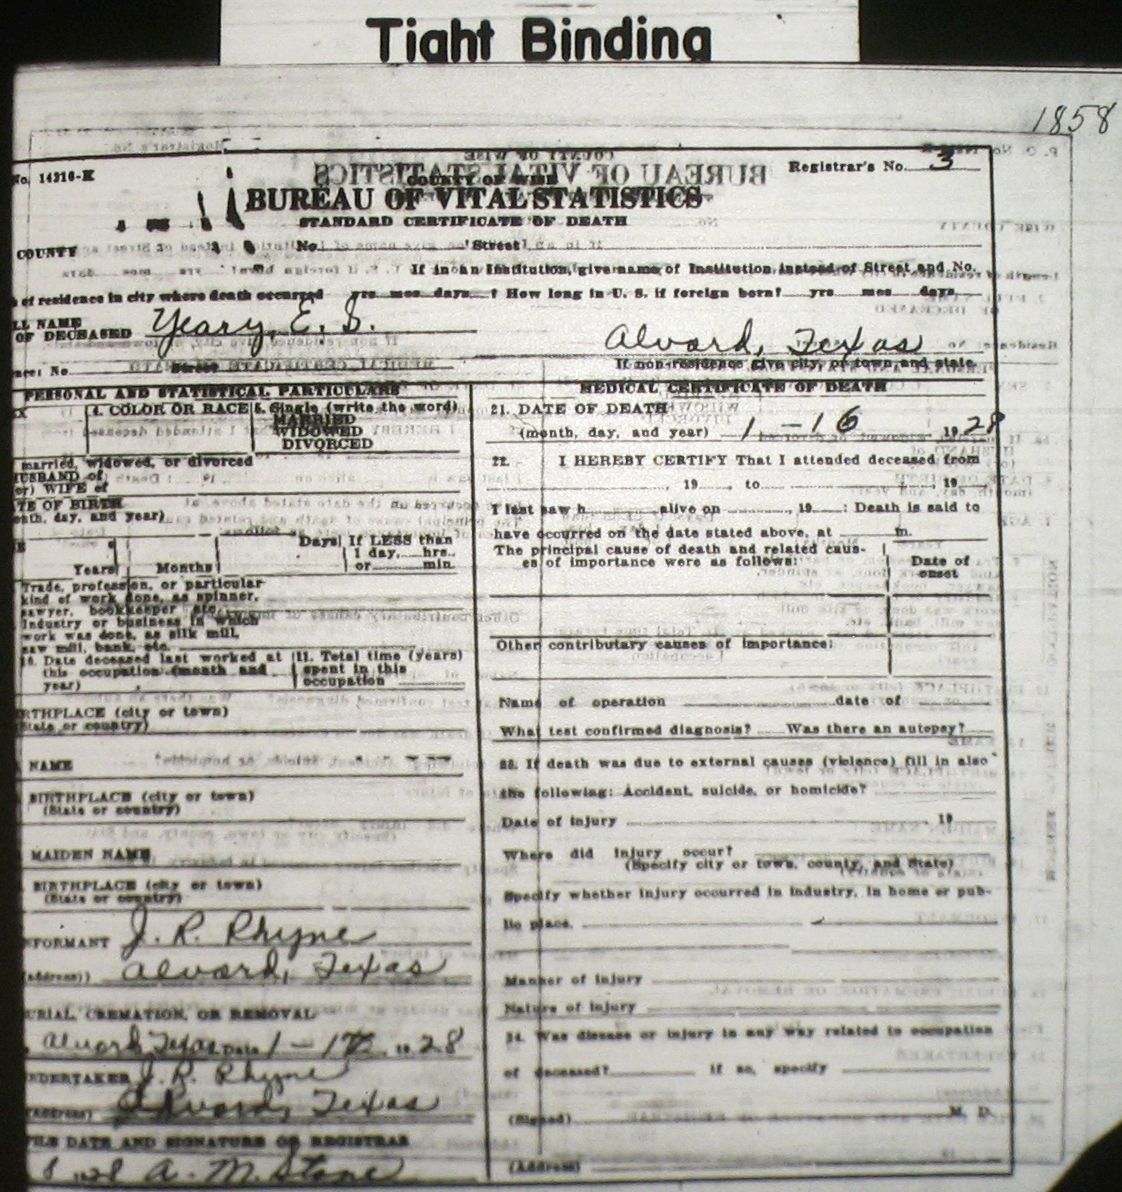 Tight Binding
1858
No. 14216-K
COUNTY OF WISE
Registrar's No. 3
BUREAU OF VITAL STATISTICS
STANDARD CERTIFICATE OF DEATH
COUNTY No. Street
If in an Institution, give name of Institution instead of Street and No.
of residence in city where death occurred yrs mos days ? How long in U. S. if foreign born? yrs mos days
LL NAME
OF DECEASED Yeary, E. S.
Alvord, Texas
ace: No Street If non-residence give city, or town, and state.
PERSONAL AND STATISTICAL PARTICULARS
4. COLOR OR RACE 5. Single (write the word)
MARRIED
WIDOWED
DIVORCED
married, widowed, or divorced
USBAND of
(or) WIFE of
TE OF BIRTH
onth, day, and year)
Years Months Days If LESS than
1 day, hrs.
or min.
Trade, profession, or particular
kind of work done, as spinner,
sawyer, bookkeeper etc.
Industry or business in which
work was done, as silk mill,
saw mill, bank, etc.
10. Date deceased last worked at
this occupation (month and
year)
11. Total time (years)
spent in this
occupation
RTHPLACE (city or town)
(State or country)
NAME
BIRTHPLACE (city or town)
(State or country)
MAIDEN NAME
BIRTHPLACE (city or town)
(State or country)
NFORMANT J. R. Rhyne
(address) Alvord, Texas
URIAL, CREMATION, OR REMOVAL
Alvord, Texas Date 1-17 1928
NDERTAKER J. R. Rhyne
(Address) Alvord, Texas
FILE DATE AND SIGNATURE OF REGISTRAR
8 1928 A. M. Stone
MEDICAL CERTIFICATE OF DEATH
21. DATE OF DEATH
(month, day, and year) 1-16 1928
22. I HEREBY CERTIFY That I attended deceased from
, 19 , to , 19
I last saw h alive on , 19 : Death is said to
have occurred on the date stated above, at m.
The principal cause of death and related caus-
es of importance were as follows:
Date of
onset
Other contributary causes of importance:
Name of operation date of
What test confirmed diagnosis? Was there an autopsy?
23. If death was due to external causes (violence) fill in also
the following: Accident, suicide, or homicide?
Date of injury , 19
Where did injury occur?
(Specify city or town, county, and State)
Specify whether injury occurred in industry, in home or pub-
lic place.
Manner of injury
Nature of injury
24. Was disease or injury in any way related to occupation
of deceased? if so, specify
(Signed) M. D.
(Address)